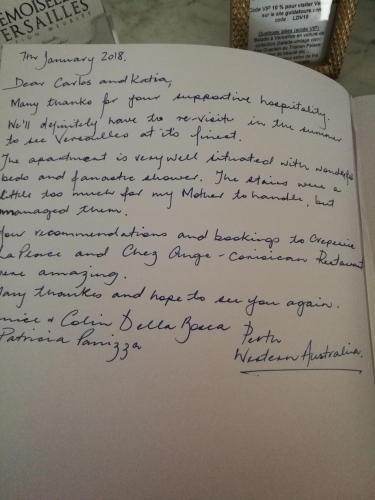 EMOISELLE
ERSAILLES
Code VIP 10 % pour visiter Ve
sur le site guidatours
code : LDV18
7th January 2018.
Dear Carlos and Katia,
Many thanks for your supportive hospitality.
We'll definitely have to re-visit in the summer
to see Versailles at its finest.
The apartment is very well situated with wonderful
beds and fanastic shower. The stairs were a
little too much for my Mother to handle, but
managed them.
Your recommendations and bookings to Creperie
La Place and Chez Ange - Corsican Restaurant
were amazing.
Many thankes and hope to see you again.
nice & Colin Della Bosca Perth
Patricia Panizza Western Australia.